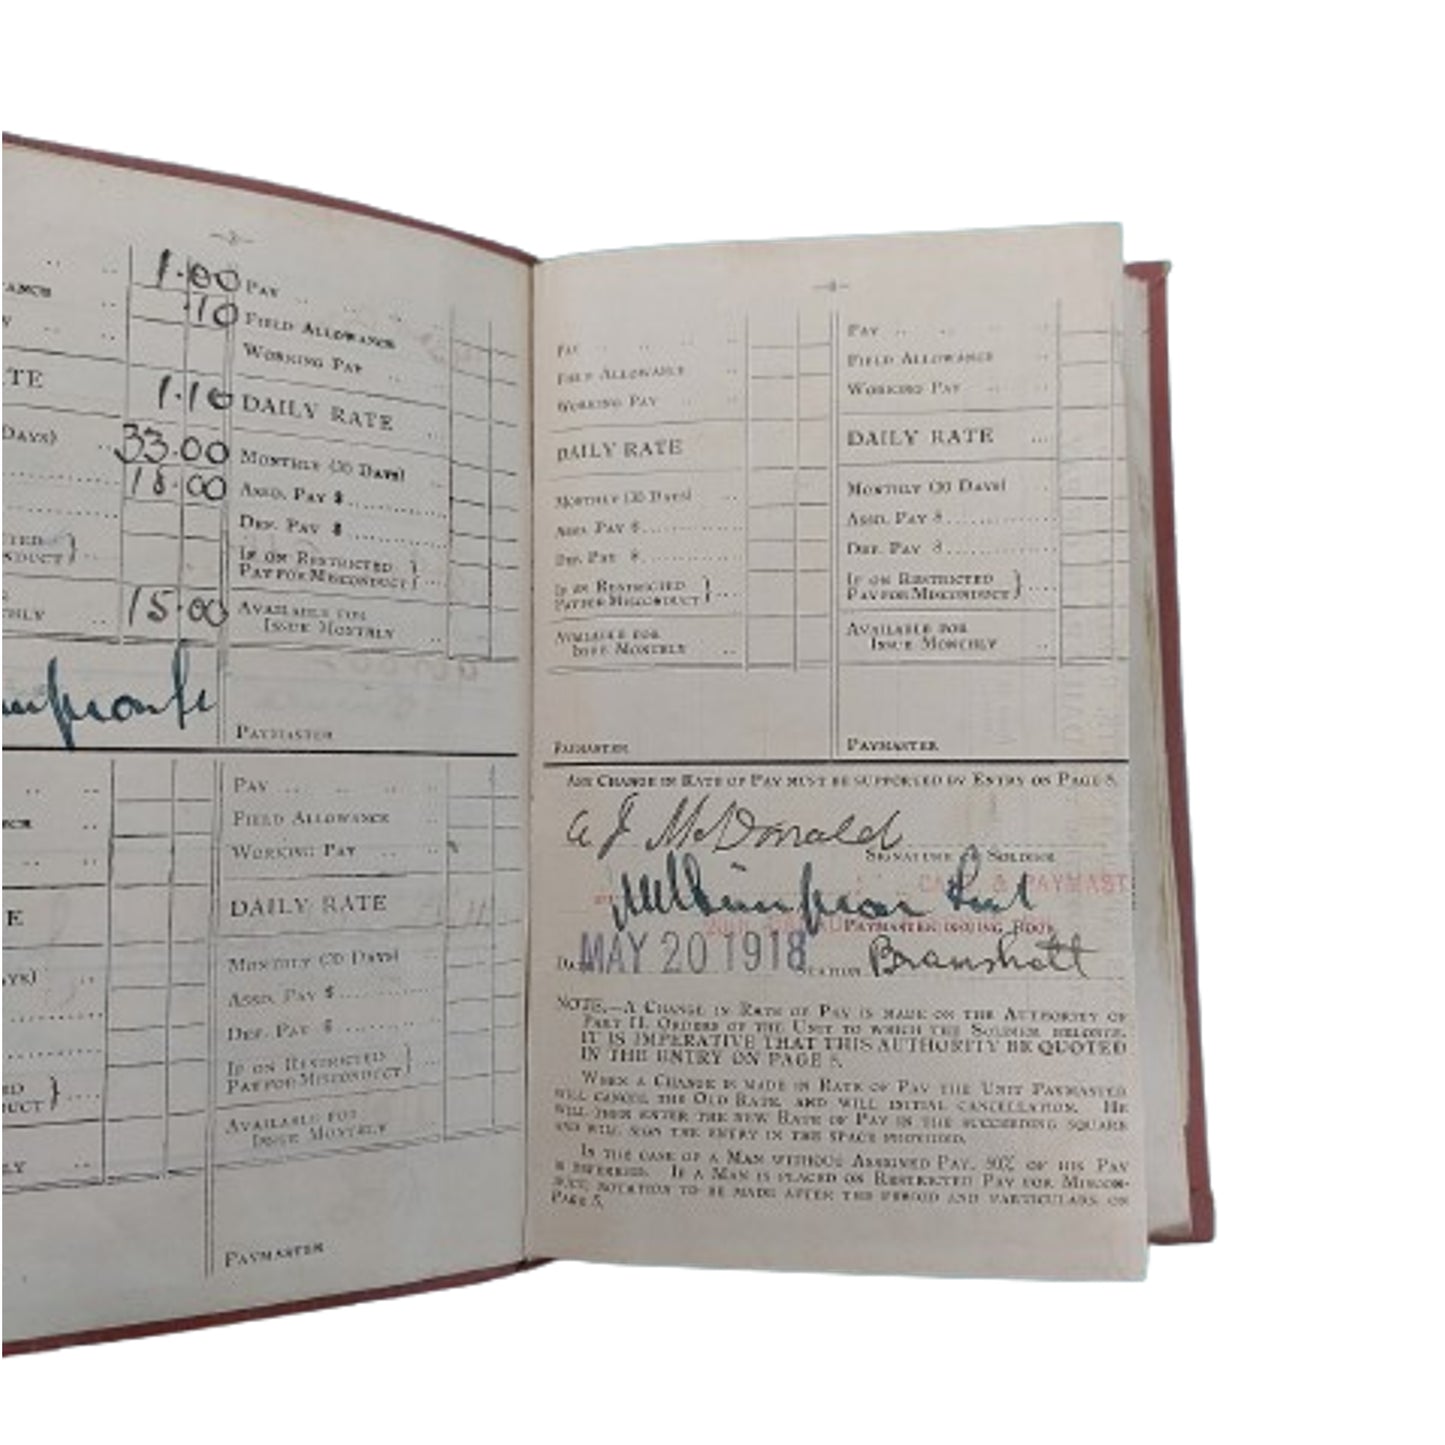 -3-
1.00
ANCE .10
TE 1.10
DAYS) 33.00
18.00
ONDUCT }
15.00
PAY
FIELD ALLOWANCE
WORKING PAY
DAILY RATE
MONTHLY (30 DAYS)
ASSD. PAY $
DEF. PAY $
IF ON RESTRICTED
PAY FOR MISCONDUCT }
AVAILABLE FOR
ISSUE MONTHLY
PAYMASTER
PAY
FIELD ALLOWANCE
WORKING PAY
DAILY RATE
MONTHLY (30 DAYS)
ASSD. PAY $
DEF. PAY $
IF ON RESTRICTED
PAY FOR MISCONDUCT }
AVAILABLE FOR
ISSUE MONTHLY
PAYMASTER
-4-
PAY
FIELD ALLOWANCE
WORKING PAY
DAILY RATE
MONTHLY (30 DAYS)
ASSD. PAY $
DEF. PAY $
IF ON RESTRICTED
PAY FOR MISCONDUCT }
AVAILABLE FOR
ISSUE MONTHLY
PAYMASTER
PAY
FIELD ALLOWANCE
WORKING PAY
DAILY RATE
MONTHLY (30 DAYS)
ASSD. PAY $
DEF. PAY $
IF ON RESTRICTED
PAY FOR MISCONDUCT }
AVAILABLE FOR
ISSUE MONTHLY
PAYMASTER
ANY CHANGE IN RATE OF PAY MUST BE SUPPORTED BY ENTRY ON PAGE 5.
A J McDonald
SIGNATURE OF SOLDIER
& PAYMAST
PAYMASTER ISSUING BOOK
MAY 20 1918 STATION Bramshott
NOTE.—A CHANGE IN RATE OF PAY IS MADE ON THE AUTHORITY OF
PART II. ORDERS OF THE UNIT TO WHICH THE SOLDIER BELONGS.
IT IS IMPERATIVE THAT THIS AUTHORITY BE QUOTED
IN THE ENTRY ON PAGE 5.
WHEN A CHANGE IS MADE IN RATE OF PAY THE UNIT PAYMASTER
WILL CANCEL THE OLD RATE, AND WILL INITIAL CANCELLATION. HE
WILL THEN ENTER THE NEW RATE OF PAY IN THE SUCCEEDING SQUARE
AND WILL SIGN THE ENTRY IN THE SPACE PROVIDED.
IN THE CASE OF A MAN WITHOUT ASSIGNED PAY, 50% OF HIS PAY
IS DEFERRED. IF A MAN IS PLACED ON RESTRICTED PAY FOR MISCON-
DUCT, NOTATION TO BE MADE AFTER THE PERIOD AND PARTICULARS ON
PAGE 5.